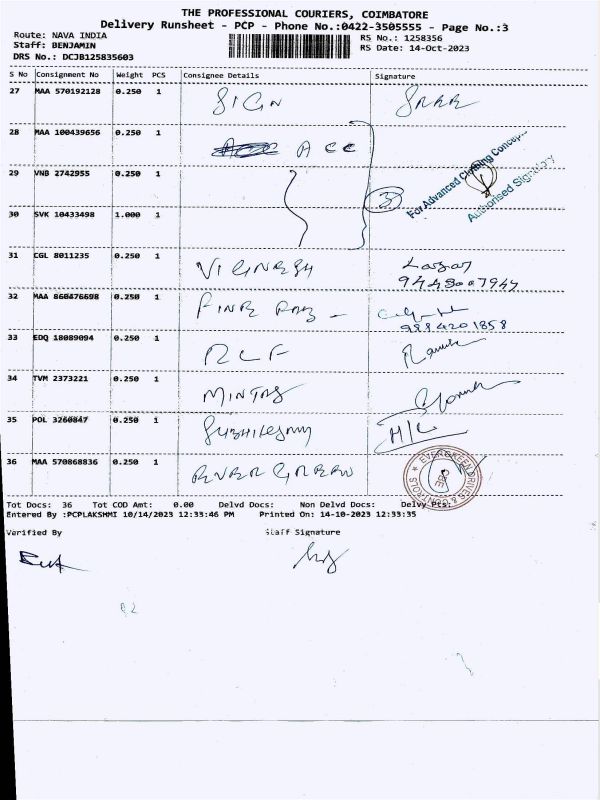 THE PROFESSIONAL COURIERS, COIMBATORE
Delivery Runsheet - PCP - Phone No.:0422-3505555 - Page No.:3
Route: NAVA INDIA
RS No.: 1258356
Staff: BENJAMIN
RS Date: 14-Oct-2023
DRS No.: DCJB125835603
S No Consignment No Weight PCS Consignee Details Signature
27 MAA 570192128 0.250 1 SIGN
28 MAA 100439656 0.250 1 ACC
For Advanced Clothing Concep...
29 VNB 2742955 0.250 1 3
Authorised Signatory
30 SVK 10433498 1.000 1
31 CGL 8011235 0.250 1 VIGNESH
32 MAA 860476698 0.250 1 FINE
9884201858
33 EDQ 18089094 0.250 1
34 TVM 2373221 0.250 1
35 POL 3260847 0.250 1
36 MAA 570868836 0.250 1 EVER GREEN
EVERGREEN DRIVES & CONTROLS CBE
Tot Docs: 36 Tot COD Amt: 0.00 Delvd Docs: Non Delvd Docs: Delvy Pct:
Entered By :PCPLAKSHMI 10/14/2023 12:33:46 PM Printed On: 14-10-2023 12:33:35
Verified By Staff Signature